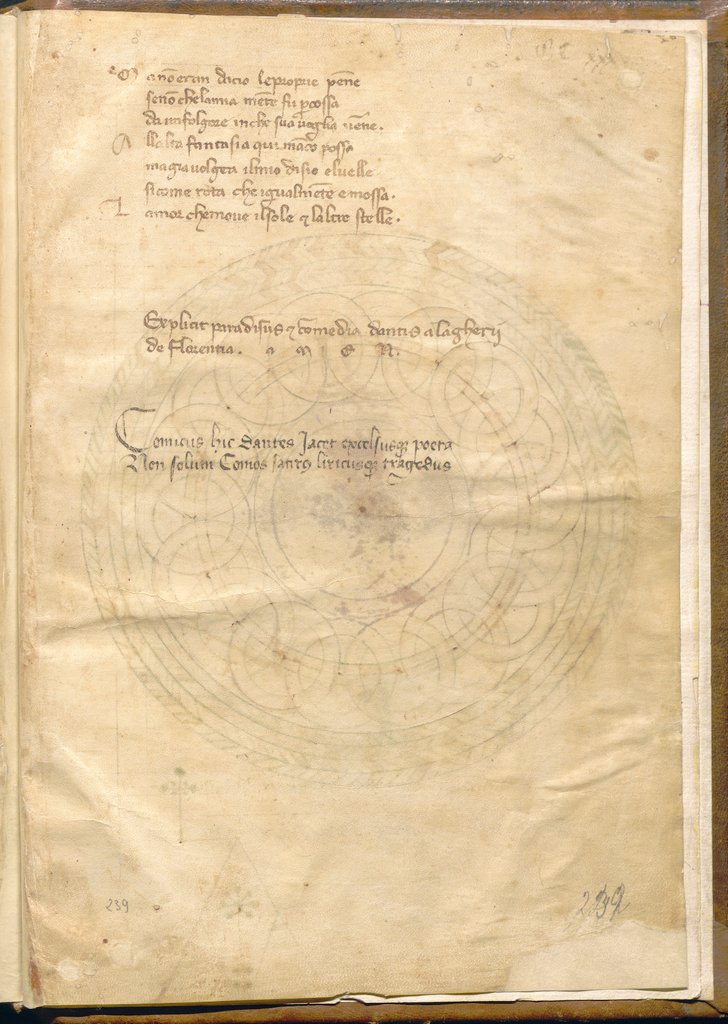 M a nō eran dicio le proprie pēne
se nō che la mia mēte fu ꝑcossa
da un folgore in che sua voglia vēne.
A llalta fantasia qui mācò possa
ma gia volgeva il mio disio el velle
si come rota che igualmēte e mossa.
L amor che move il sole ⁊ laltre stelle.
Explicit paradisus ⁊ comedia dantis alagherij
de Florentia. a m e n.
Comicus hic Dantes Jacet excelsusqꝫ poeta
Non solum Comos satirꝰ liricusqꝫ tragedus
239
239